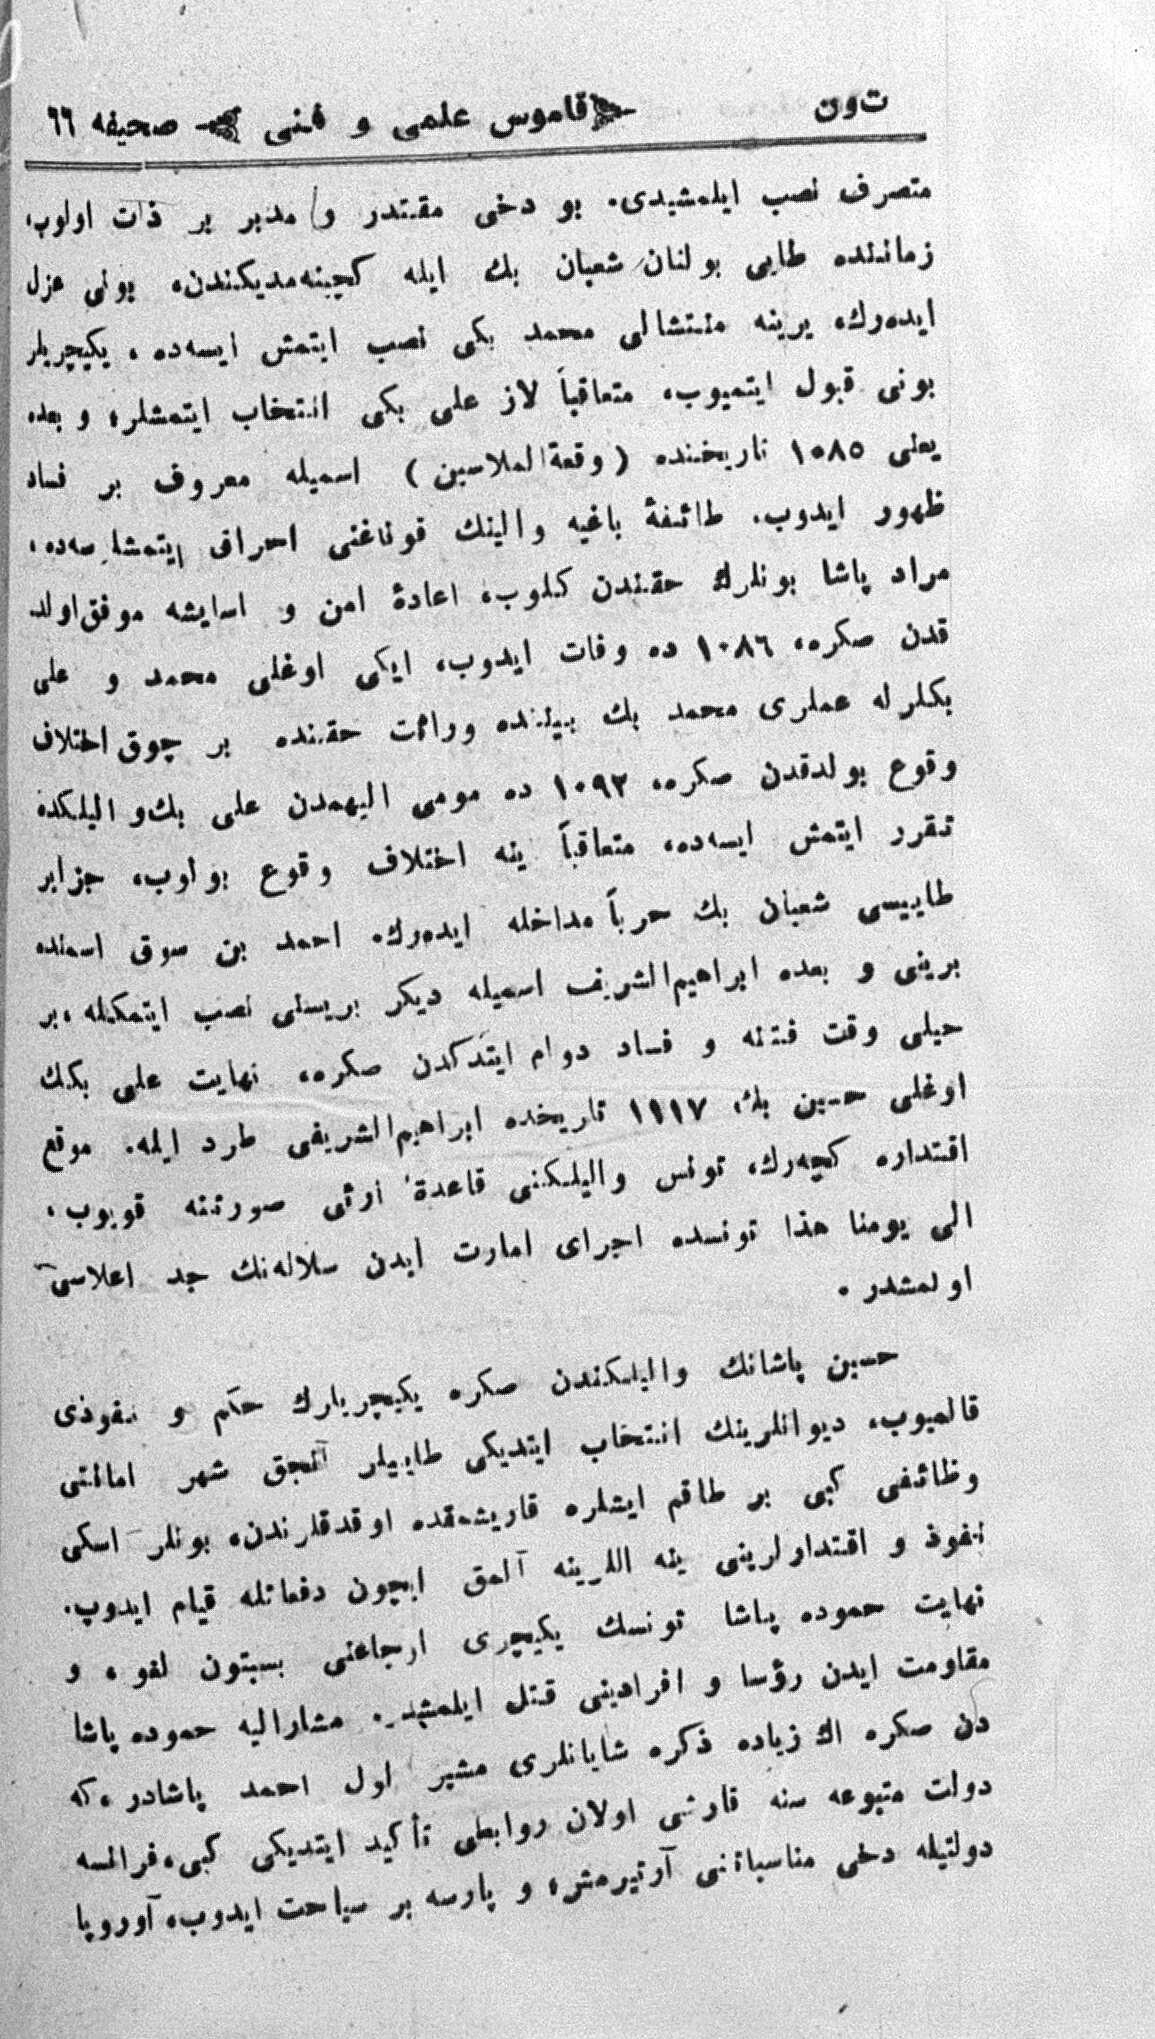 ت‌ون قاموس علمی و فنی صحیفه ٦٦
متصرف نصب ایلمشیدی. بو دخی مقتدر و مدبر بر ذات اولوب،
زماننده طایی بولنان شعبان بك ایله کچینه‌مدیکندن، بونی عزل
ایده‌رك، یرینه منتشالی محمد بکی نصب ایتمش ایسه‌ده، یکیچریلر
بونی قبول ایتمیوب، متعاقباً لاز علی بکی انتخاب ایتمشلر، و بعده
یعنی ١٠٨٥ تاریخنده (وقعة‌الملاسین) اسمیله معروف بر فساد
ظهور ایدوب. طائفهٔ باغیه والینك قوناغنی احراق ایتمشلرسه‌ده،
مراد پاشا بونلرك حقندن کلوب، اعادهٔ امن و اسایشه موفق اولد
قدن صکره، ١٠٨٦ ده وفات ایدوب، ایکی اوغلی محمد و علی
بکلرله عملری محمد بك بیننده وراثت حقنده بر چوق اختلاف
وقوع بولدقدن صکره، ١٠٩٢ ده مومی الیهمدن علی بك‌والیلکده
تقرر ایتمش ایسه‌ده، متعاقباً ینه اختلاف وقوع بولوب، جزایر
طاییسی شعبان بك حرباً مداخله ایده‌رك. احمد بن سوق اسمنده
برینی و بعده ابراهیم‌الشریف اسمیله دیکر بریسنی نصب ایتمکله، بر
خیلی وقت فتنه و فساد دوام ایتدکدن صکره، نهایت علی بکك
اوغلی حسین بك، ١١١٧ تاریخده ابراهیم‌الشریفی طرد ایله. موقع
اقتداره کچه‌رك، تونس والیلکنی قاعدهٔ ارثی صورتنه قویوب،
الی یومنا هذا تونسده اجرای امارت ایدن سلاله‌نك جد اعلاسی
اولمشدر.
حسین پاشانك والیلکندن صکره یکیچریلرك حکم و نفوذی
قالمیوب، دیوانلرینك انتخاب ایتدیکی طاییلر آنجق شهر امانتی
وظائفی کبی بر طاقم ایشلره قاریشمقده اولدقلرندن، بونلر اسکی
نفوذ و اقتدارلرینی ینه اللرینه آلمق ایچون دفعاتله قیام ایدوب.
نهایت حموده پاشا تونسك یکیچری اوجاغنی بسبتون لغو، و
مقاومت ایدن رؤسا و افرادینی قتل ایلمشدر. مشارالیه حموده پاشا
دن صکره اك زیاده ذکره شایانلری مشیر اول احمد پاشادر، که
دولت متبوعه سنه قارشی اولان روابطی تأکید ایتدیکی کبی، فرانسه
دولتیله دخی مناسباتنی آرتیرمش، و پارسه بر سیاحت ایدوب، آوروپا